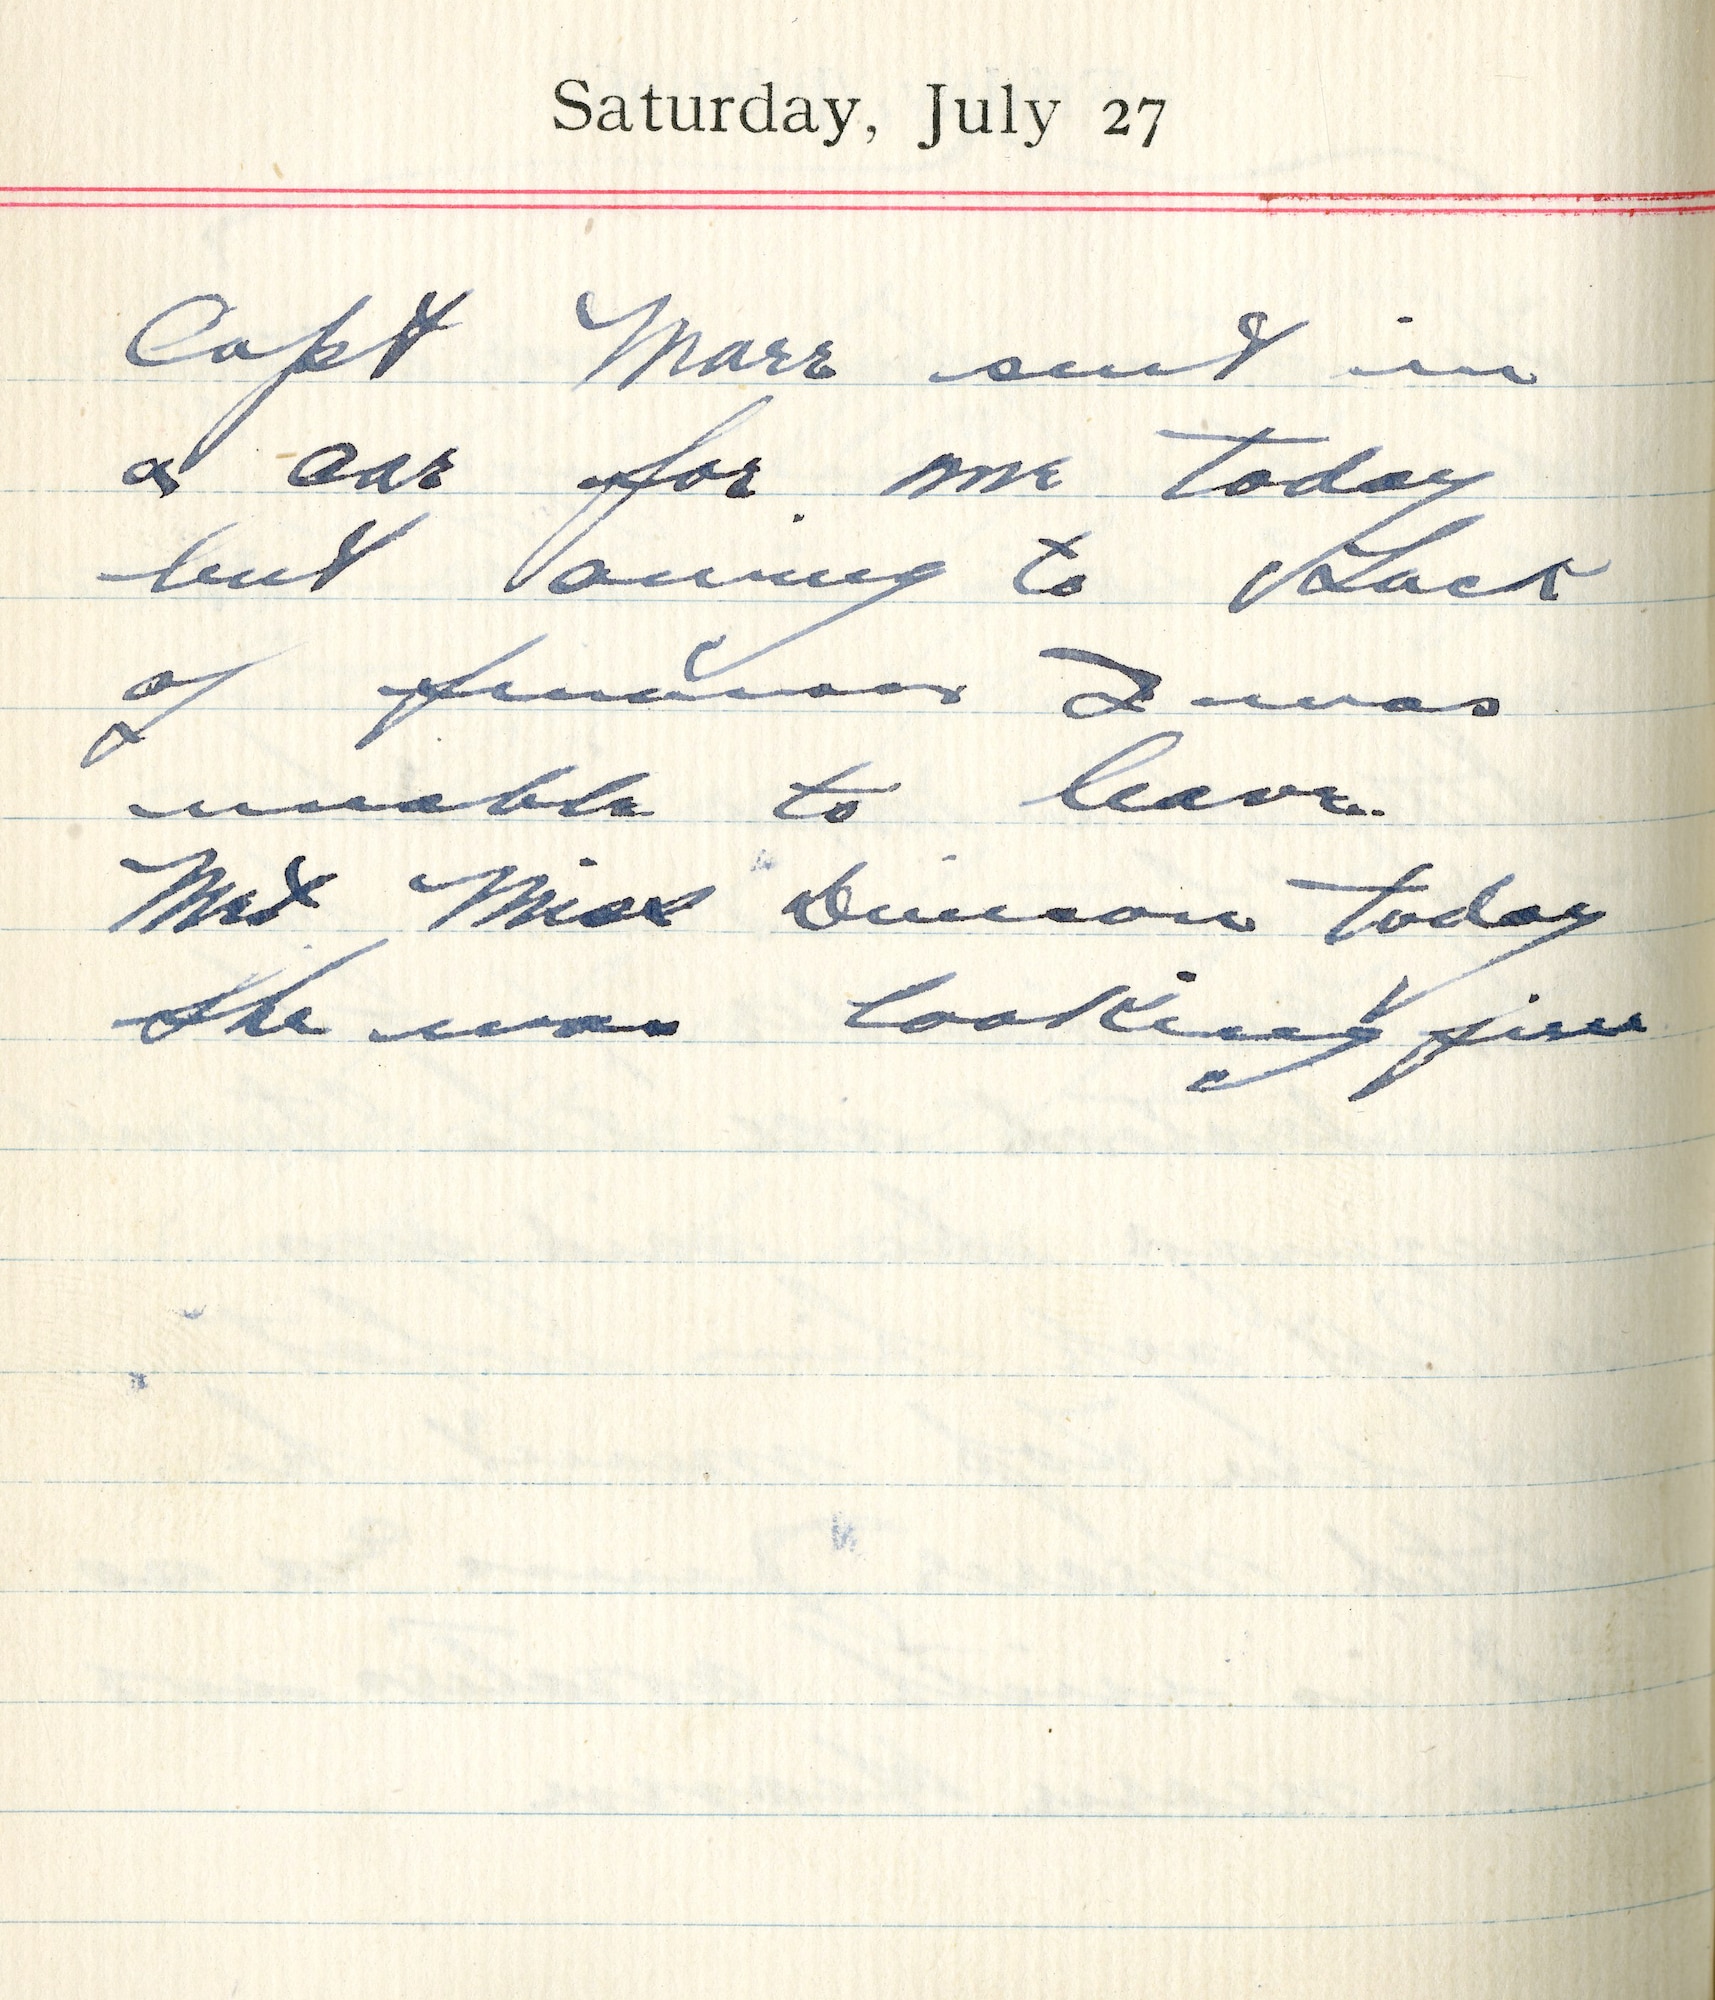 Saturday, July 27
Capt Marr sent in
a car for me today
but owing to Lack
of finances I was
unable to leave.
Met Miss today
She was looking fine